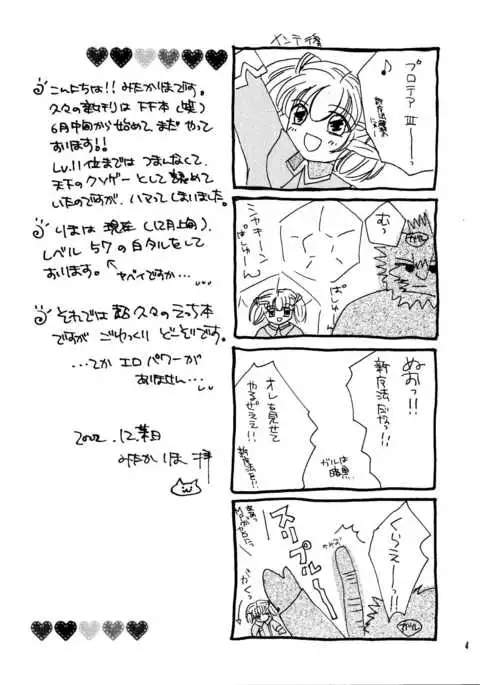 こんにちは!! みたかりほです。
久々の新刊は FF本(笑)
6月中旬から始めて まだ やって
おります!!
Lv.11位までは つまんなくて、
天下のクソゲーとして認めて
いたのですが、ハマッてしまいました。
いまは 現在(12月上旬)、
レベル 57の白タルをして
おります。
ヤベイですか…
それでは 久々のえっち本
ですが ごゆっくり どーぞです。
…てか エロパワーが
ありません…
みたか りほ 拝
メンテ後
プロテア Ⅲーっ
♪
むっ
ガル
シャキーン
ぱしゅん
ぱしゅーん
ぬおっ!!
新魔法だなっ!!
オレも見せて
やるぜええ!!
新魔法を!!
ガルは
暗黒…
くらえーっ!!
スリプルー
がくっ
ガル
4